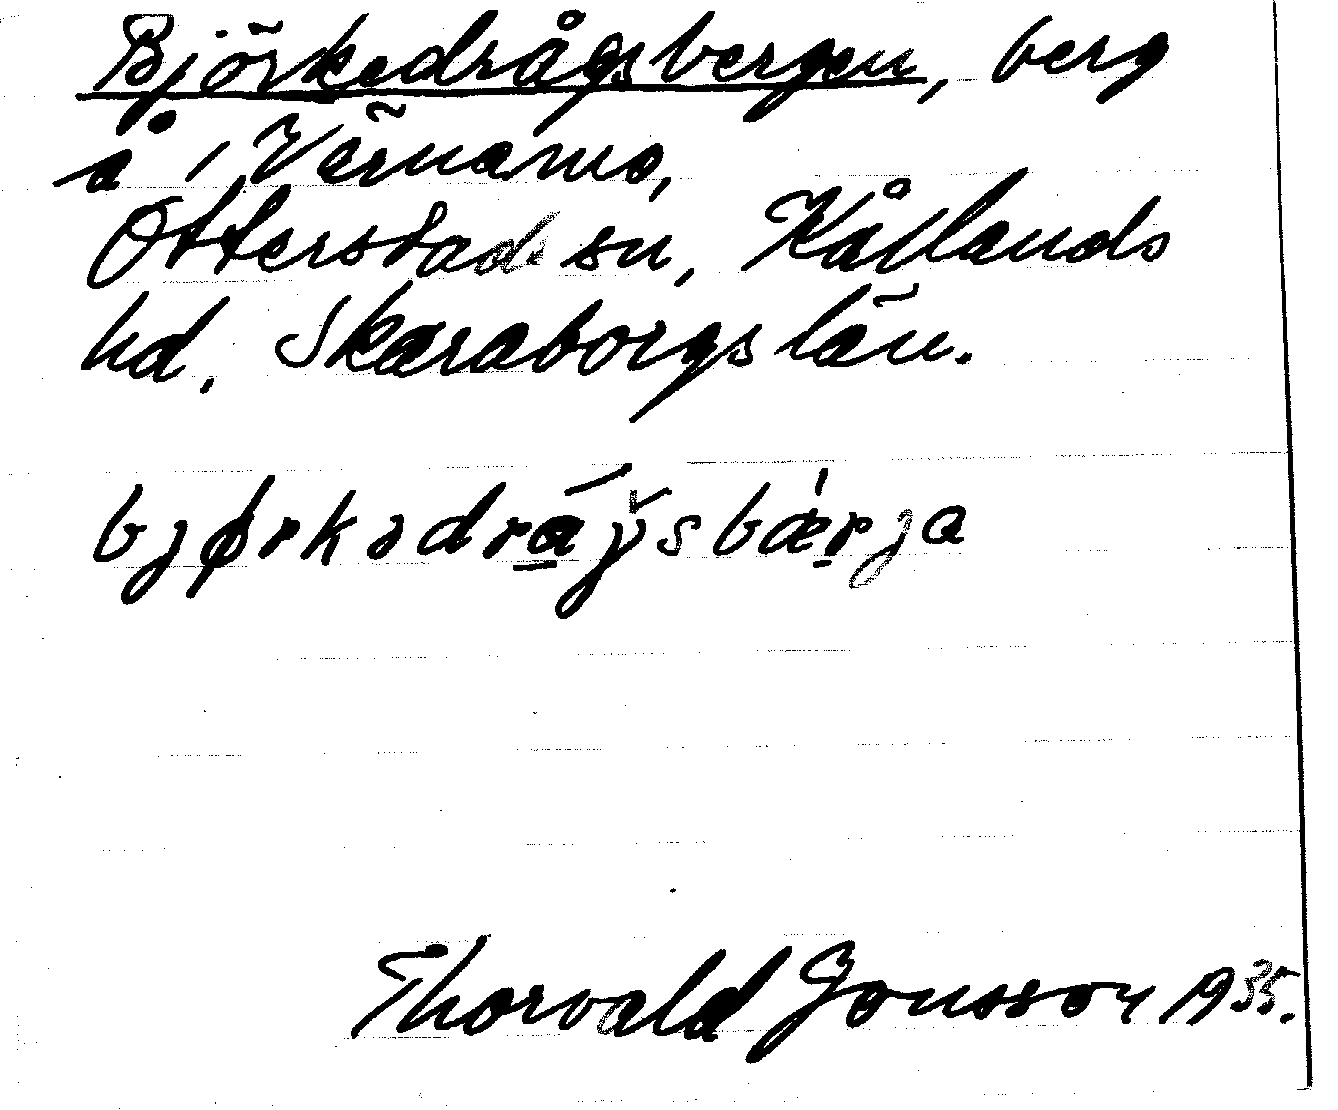 Björkedrågsbergen, berg
å i Värnamo,
Otterstad sn, Kållands
hd. Skaraborgs län.
bjørkədrágsbǽrja
Thorvald Jonsson 1935.